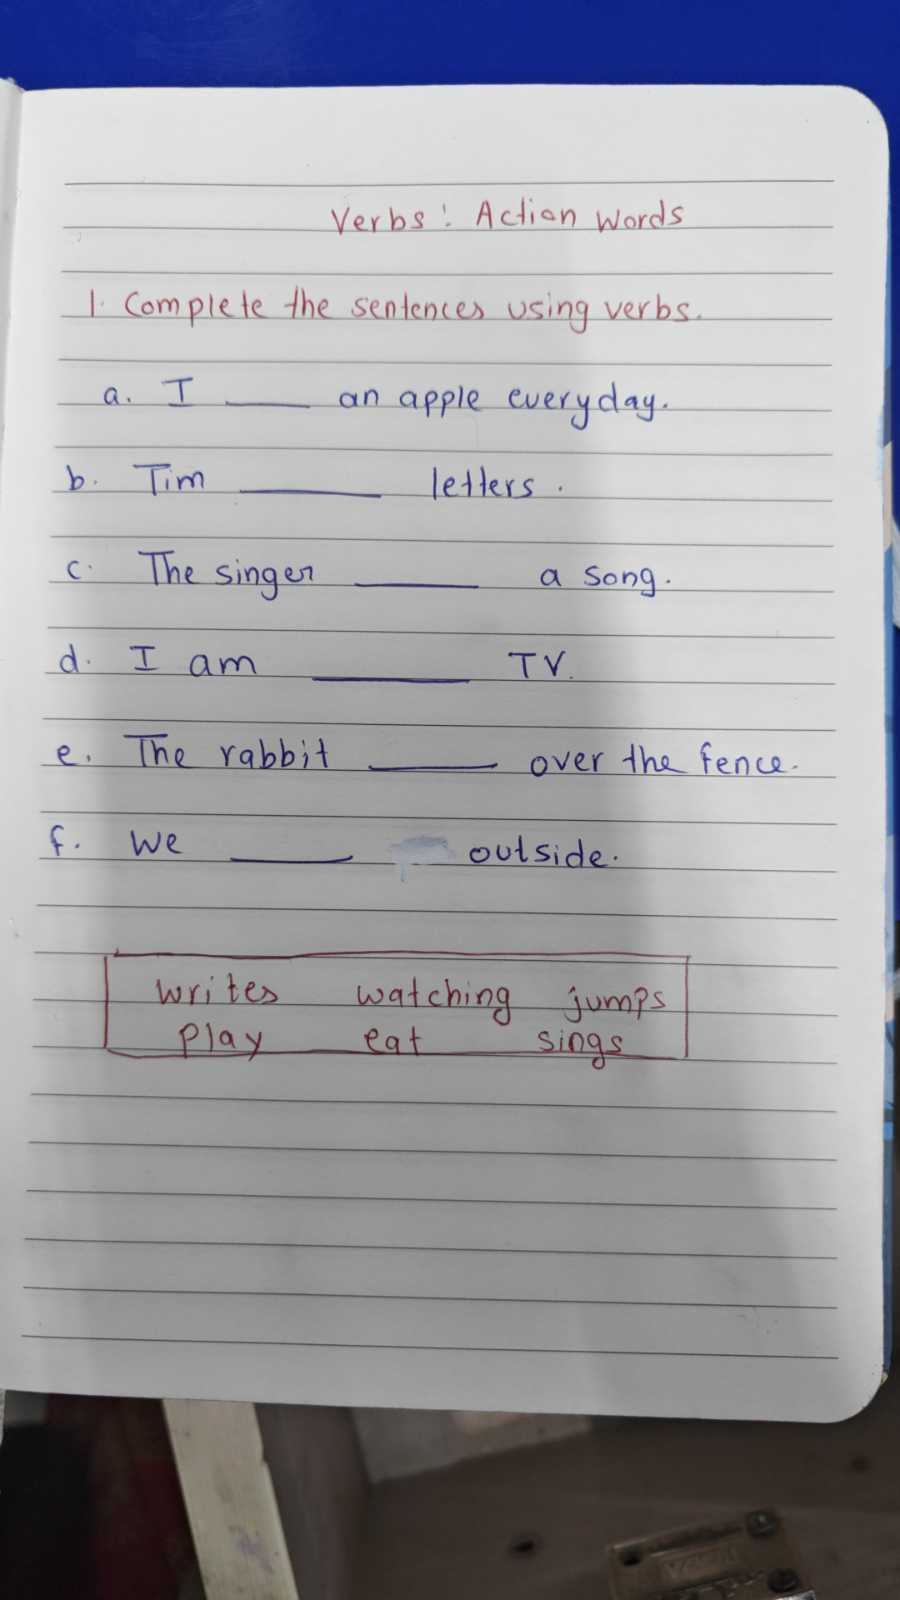 Verbs: Action Words
1. Complete the sentences using verbs.
a. I ____ an apple everyday.
b. Tim ____ letters.
c. The singer ____ a song.
d. I am ____ TV.
e. The rabbit ____ over the fence.
f. We ____ outside.
writes watching jumps
play eat sings